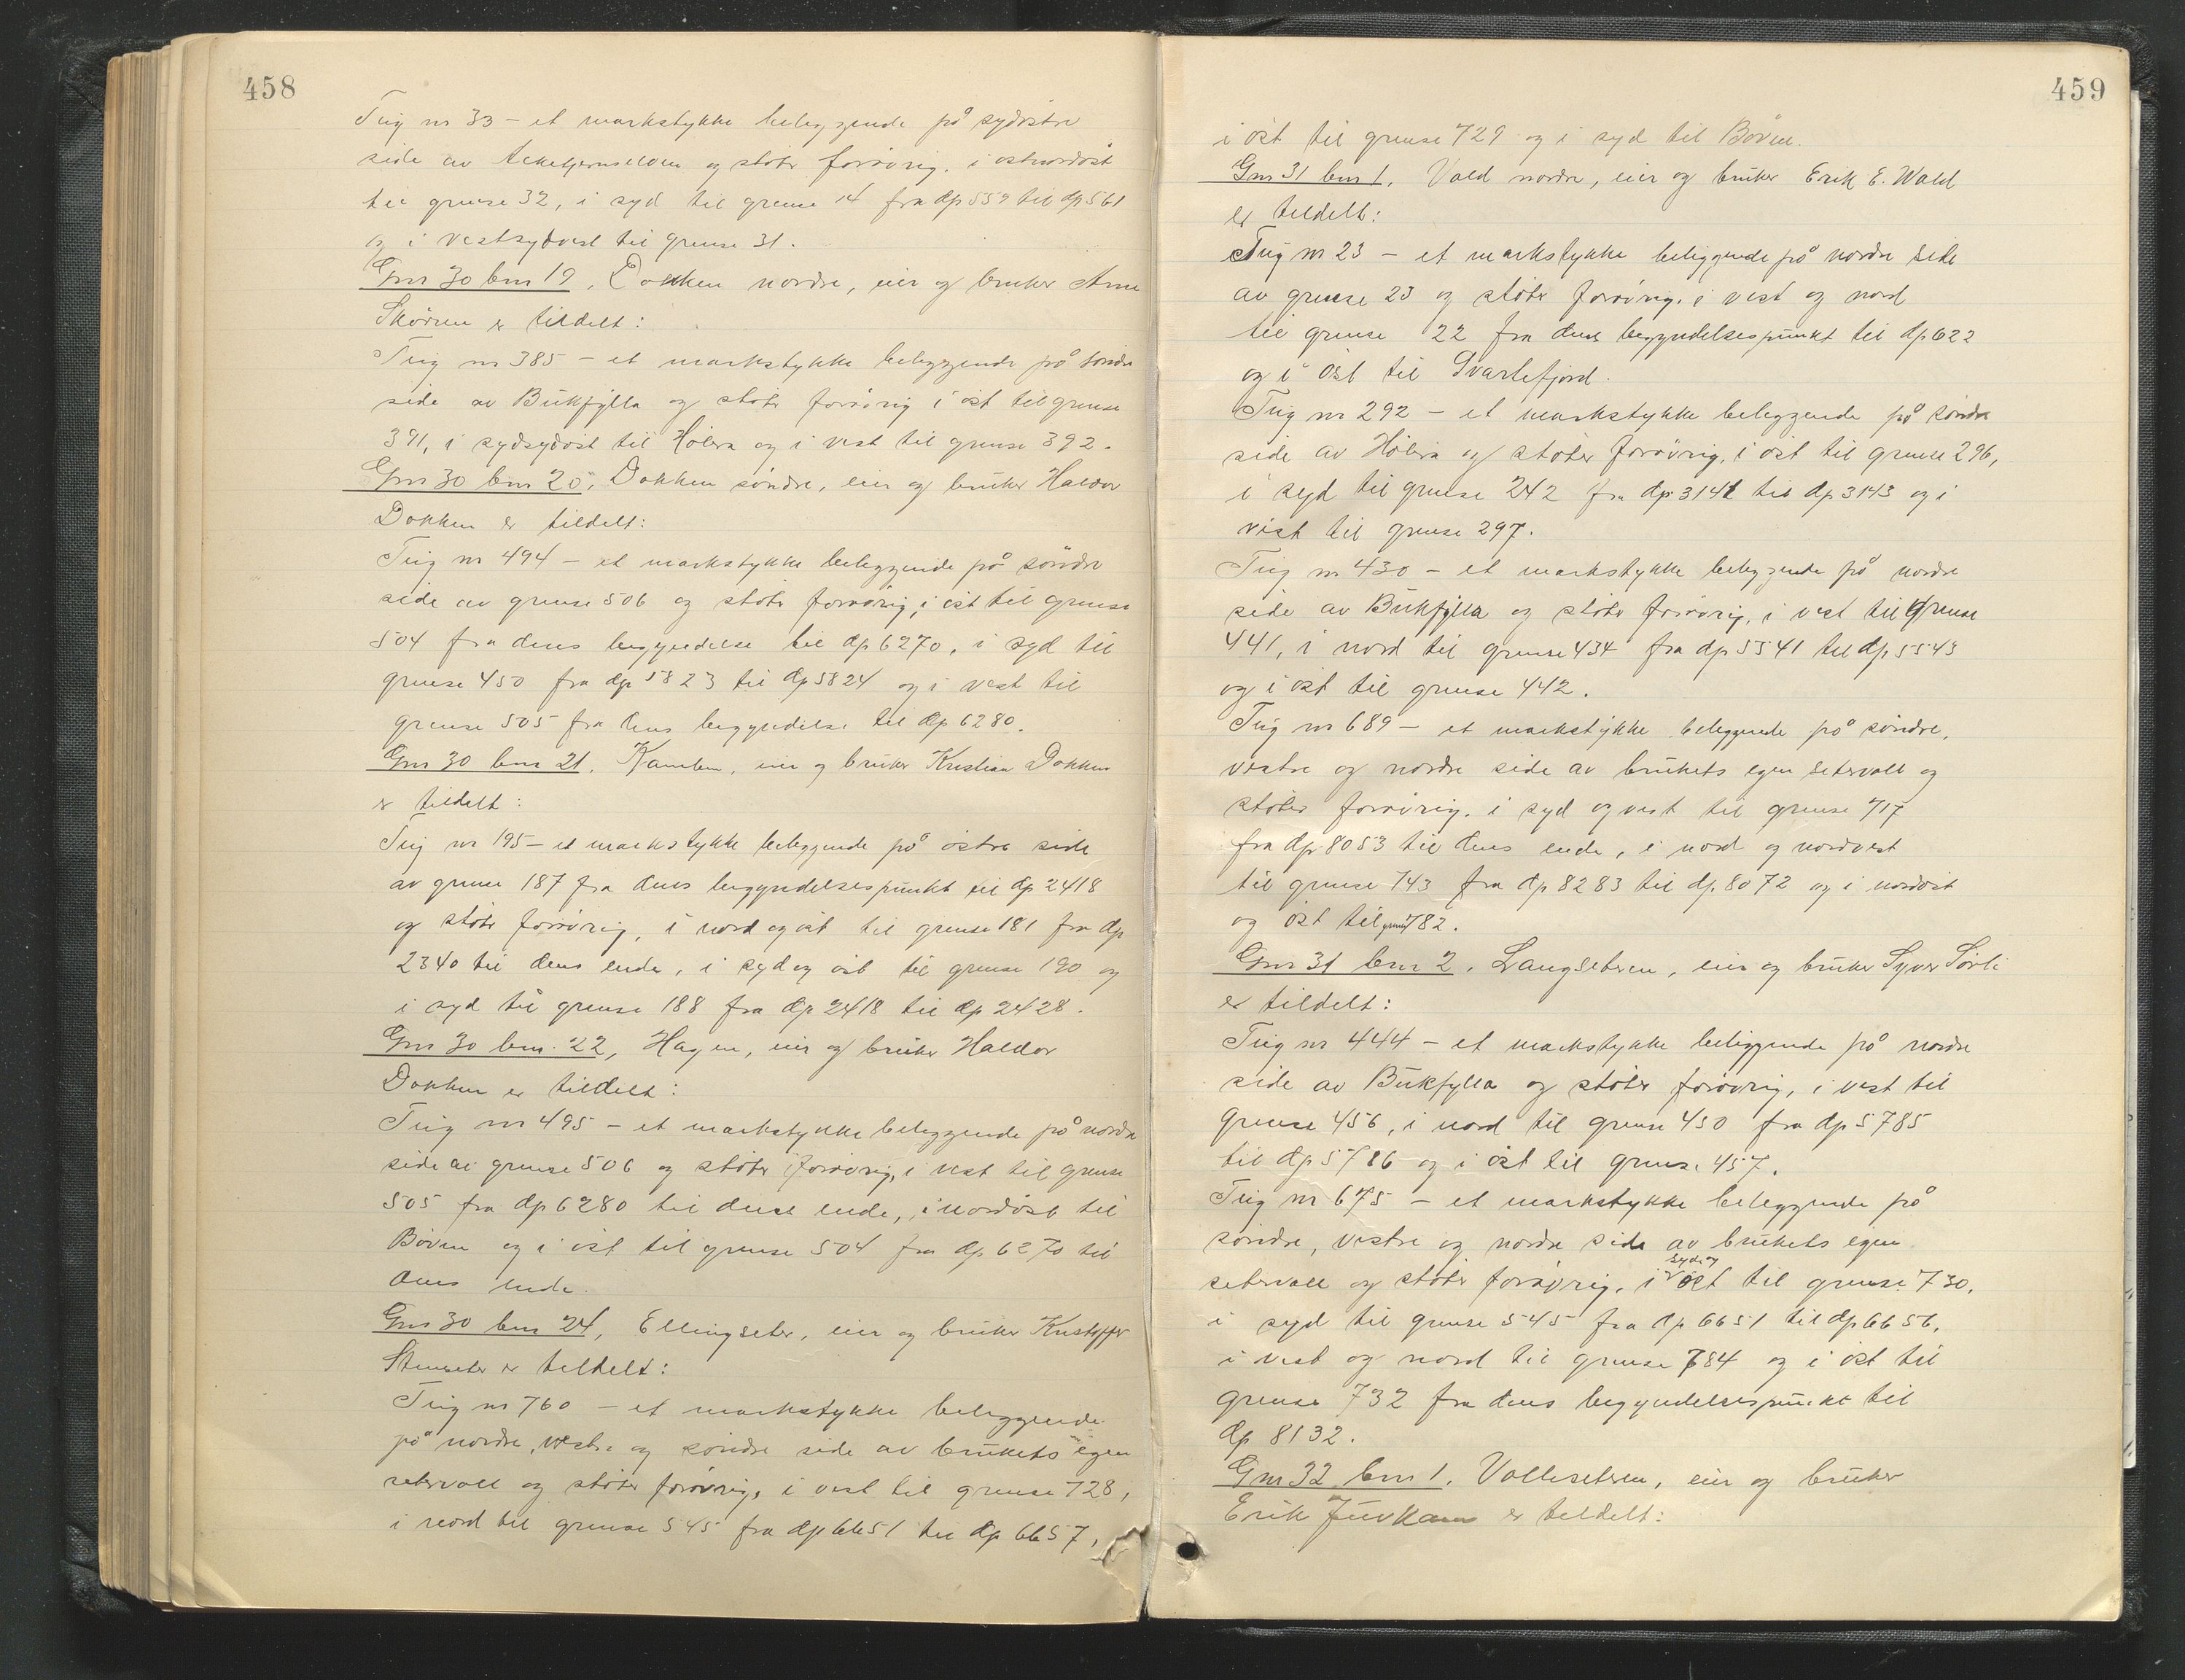 458
Teig nr 33 – et markstykke beliggende på sydöstre
side av og stöter forövrig, i ostnordöst
til grense 32, i syd til grense 14 fra dp 559 til dp 561
og i vestsydvest til grense 31.
Gnr 30 bnr 19, Dokken nordre, eier og bruker Arne
Skören er tildelt:
Teig nr 385 – et markstykke beliggende på söndre
side av Bukfylla og stöter forövrig i öst til grense
391, i sydsydöst til Hölera og i vest til grense 392.
Gnr 30 bnr 20, Dokken söndre, eier og bruker Haldor
Dokken er tildelt:
Teig nr 494 – et markstykke beliggende på söndre
side av grense 506 og stöter forövrig, i öst til grense
504 fra dens begyndelse til dp 6270, i syd til
grense 450 fra dp 5823 til dp 5824 og i vest til
grense 505 fra dens begyndelse til dp 6280.
Gnr 30 bnr 21, eier og bruker Kristian Dokken
er tildelt:
Teig nr 195 – et markstykke beliggende på östre side
av grense 187 fra dens begyndelsespunkt til dp 2418
og stöter forövrig, i nord og öst til grense 181 fra dp
2340 til dens ende, i syd og öst til grense 190 og
i syd til grense 188 fra dp 2418 til dp 2428.
Gnr 30 bnr 22, Hagen, eier og bruker Haldor
Dokken er tildelt:
Teig nr 495 – et markstykke beliggende på nordre
side av grense 506 og stöter forövrig, i vest til grense
505 fra dp 6280 til dens ende, i nordöst til
Böven og i öst til grense 504 fra dp 6270 til
dens ende.
Gnr 30 bnr 24, Ellingseter, eier og bruker Kristoffer
Stenseter er tildelt:
Teig nr 760 – et markstykke beliggende
på nordre, vestre og söndre side av brukets egen
setervoll og stöter forövrig, i vest til grense 728,
i nord til grense 545 fra dp 6651 til dp 6657,
459
i öst til grense 729 og i syd til Böven.
Gnr 31 bnr 1, Vold nordre, eier og bruker Erik E. Wold
er tildelt:
Teig nr 23 – et markstykke beliggende på nordre side
av grense 23 og stöter forövrig, i vest og nord
til grense 22 fra dens begyndelsespunkt til dp 622
og i öst til Svartefjord.
Teig nr 292 – et markstykke beliggende på söndre
side av Hölera og stöter forövrig, i öst til grense 296,
i syd til grense 242 fra dp 3141 til dp 3143 og i
vest til grense 297.
Teig nr 430 – et markstykke beliggende på nordre
side av Bukfylla og stöter forövrig, i vest til grense
441, i nord til grense 434 fra dp 5541 til dp 5543
og i öst til grense 442.
Teig nr 689 – et markstykke beliggende på söndre,
vestre og nordre side av brukets egen setervoll og
stöter forövrig, i syd og vest til grense 717
fra dp 8053 til dens ende, i nord og nordvest
til grense 743 fra dp 8283 til dp 8072 og i nordöst
og öst til grense 782.
Gnr 31 bnr 2, Langseteren, eier og bruker Syver Sörli
er tildelt:
Teig nr 444 – et markstykke beliggende på nordre
side av Bukfylla og stöter forövrig, i vest til
grense 456, i nord til grense 450 fra dp 5785
til dp 5786 og i öst til grense 457.
Teig nr 675 – et markstykke beliggende på
söndre, vestre og nordre side av brukets egen
setervoll og stöter forövrig, i syd og öst til grense 730,
i syd til grense 545 fra dp 6651 til dp 6656,
i vest og nord til grense 784 og i öst til
grense 732 fra dens begyndelsespunkt til
dp 8132.
Gnr 32 bnr 1, Volleseteren, eier og bruker
Erik Juvkam er tildelt: